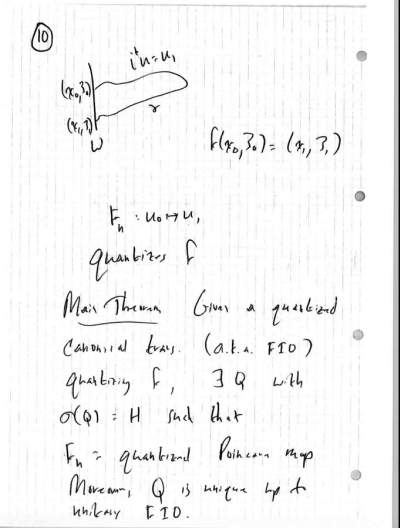 10
i^+ u = u_1
(x_0, ξ_0)
(x_1, ξ_1)
γ
W
f(x_0, ξ_0) = (x_1, ξ_1)
F_h : u_0 ↦ u_1
quantizes f
Main Theorem Given a quantized
canonical trans. (a.k.a. FIO)
quantizing f, ∃ Q with
σ(Q) = H such that
F_h = quantized Poincare map
Moreover, Q is unique up to
unitary FIO.